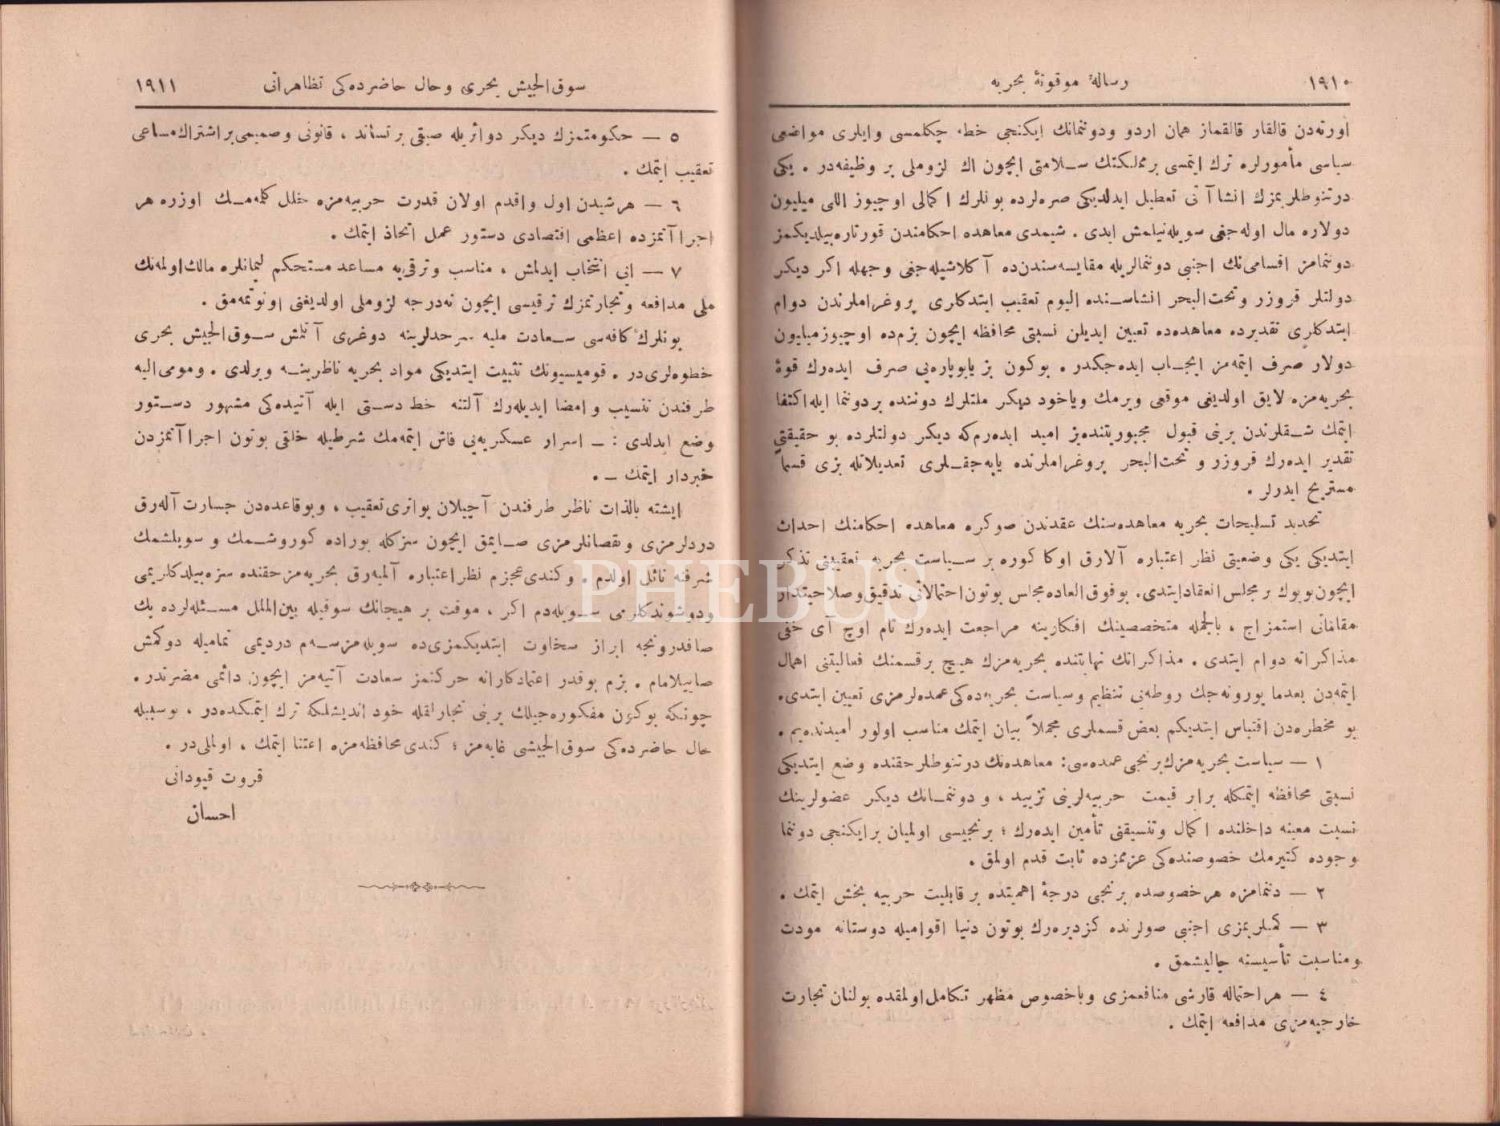 ١٩١٠ رسالۀ موقوتۀ بحریه
اورته‌دن قالقار قالقماز همان اردو ودوننمانك ایكنجی خطه چكلمسی وایلری مواضعی
سیاسی مأمورلره ترك ایتمسی بر مملكتك سلامتی ایچون اك لزوملی بر وظیفه‌در . یكی
دردنوطلریمزك انشاآتی تعطیل ایدلدیكی صره‌لرده بونلرك اكمالی اوچیوز اللی میلیون
دولاره مال اوله‌جغی سویله‌نیلمش ایدی . شیمدی معاهده احكامندن قورتاره‌بیلدیكمز
دوننمامز اقسامی‌نك اجنبی دوننمالریله مقایسه‌سندن‌ده آكلاشیله‌جغی وجهله اكر دیكر
دولتلر قروزر وتحت‌البحر انشاسنده الیوم تعقیب ایتدكلری پروغراملرندن دوام
ایتدكلری تقدیرده معاهده‌ده تعیین ایدیلن نسبتی محافظه ایچون بزم‌ده اوچیوزمیلیون
دولار صرف ایتمه‌مز ایجاب ایده‌جكدر . بوكون بز یابوپاره‌یی صرف ایده‌رك قوۀ
بحریه‌مزه لایق اولدیغی موقعی ویرمك ویاخود دیكر ملتلرك دوننده بردوننما ایله اكتفا
ایتمك شقلرندن برینی قبول مجبوریتنده‌یز امید ایده‌رم‌كه دیكر دولتلرده بو حقیقتی
تقدیر ایده‌رك قروزر و تحت‌البحر پروغراملرنده یاپه‌جقلری تعدیلاتله بزی قسماً
مستریح ایدرلر .
تحدید تسلیحات بحریه معاهده‌سنك عقدندن صوكره معاهده احكامنك احداث
ایتدیكی یكی وضعیتی نظر اعتباره آلارق اوكا كوره بر سیاست بحریه تعقیبنی تذكر
ایچون‌بویوك برمجلس‌انعقادایتدی. بوفوق‌العاده‌مجلس بوتون‌احتمالاتی تدقیق‌وصلاحیتدار
مقاماتی استمزاج ، بالجمله متخصصینك افكارینه مراجعت ایده‌رك تام اوچ آی خفی
مذاكراته دوام ایتدی . مذاكراتك نهایتنده بحریه‌مزك هیچ برقسمنك فعالیتنی اهمال
ایتمه‌دن بعدما یورونه‌جك روطه‌یی تنظیم وسیاست بحریه‌ده‌كی عمده‌لرمزی تعیین ایتدی.
بو مخطره‌دن اقتباس ایتدیكم بعض قسملری مجملاً بیان ایتمك مناسب اولور امیدنده‌یم .
١ — سیاست بحریه‌مزك‌برنجی‌عمده‌سی: معاهده‌نك دردنوطلرحقنده وضع ایتدیكی
نسبتی محافظه ایتمكله برابر قیمت حربیه‌لرینی تزیید ، و دوننمانك دیكر عضولرینك
نسبت معینه داخلنده اكمال وتنسیقنی تأمین ایده‌رك ؛ برنجیسی اولمیان برایكنجی دوننما
وجوده كتیرمك خصوصنده‌كی عزممزده ثابت قدم اولمق .
٢ — دننمامزه هرخصوصده برنجی درجۀ اهمیتده برقابلیت حربیه بخش ایتمك .
٣ — كمیلریمزی اجنبی صولرنده كزدیره‌رك بوتون دنیا اقوامیله دوستانه مودت
ومناسبت تأسیسنه چالیشمق .
٤ — هراحتماله قارشی منافعمزی وباخصوص مظهر تكامل‌اولمقده بولنان تجارت
خارجیه‌مزی مدافعه ایتمك .
سوق‌الجیش بحری و حال حاضرده‌كی تظاهراتی ١٩١١
٥ — حكومتمزك دیكر دوائریله صیقی برتساند ، قانونی وصمیمی‌براشتراك‌مساعی
تعقیب ایتمك .
٦ — هرشیدن اول واقدم اولان قدرت حربیه‌مزه خلل كلمه‌مك اوزره هر
اجراآتمزده اعظمی اقتصادی دستور عمل اتخاذ ایتمك .
٧ — ایی انتخاب ایدلمش ، مناسب وترقی‌یه مساعد مستحكم لیمانلره مالك‌اولمه‌نك
ملی مدافعه وتجارتمزك ترقیسی ایچون نه‌درجه لزوملی اولدیغنی اونوتمه‌مق .
بونلرك كافه‌سی سعادت ملیه سرحدلرینه دوغری آتلمش سوق‌الجیش بحری
خطوه‌لری‌در . قومیسیونك تثبیت ایتدیكی مواد بحریه ناظرینه ویرلدی . ومومی‌الیه
طرفندن تنسیب و امضا ایدیله‌رك آلتنه خط دستی ایله آتیده‌كی مشهور دستور
وضع ایدلدی : ـ اسرار عسكریه‌یی فاش ایتمه‌مك شرطیله خلقی بوتون اجراآتمزدن
خبردار ایتمك ـ .
ایشته بالذات ناظر طرفندن آچیلان بوایزی‌تعقیب ، وبوقاعده‌دن جسارت آله‌رق
دردلرمزی ونقصانلرمزی صایمق ایچون سزكله بوراده كوروشمك و سویلشمك
شرفنه نائل اولدم . وكندی‌عجزم نظراعتباره آلمیه‌رق بحریه‌مزحقنده سزه‌بیلدكلریمی
ودوشوندكلرمی سویله‌دم اكر ، موقت بر هیجانك سوقیله بین‌الملل مسئله‌لرده یك
صافدرونجه ابراز سخاوت ایتدیكمزی‌ده سویله‌مزسه‌م دردیمی تمامیله دوكمش
صاییلامام . بزم بوقدر اعتمادكارانه حركتمز سعادت آتیه‌مز ایچون دائمی مضرتدر .
چونكه بوكون مفكوره‌جیلك یرینی تجارتله خود اندیشلكه ترك ایتمكده‌در ، بوسببله
حال حاضرده‌كی سوق‌الجیشی غایه‌مز ؛ كندی محافظه‌مزه اعتنا ایتمك ، اولملی‌در .
قروت قپودانی
احسان
PHEBUS